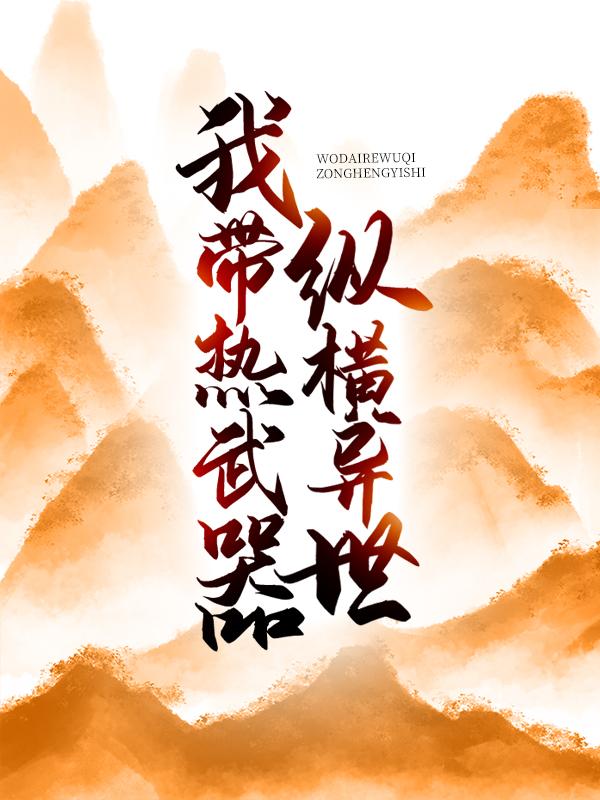 我带热武器
纵横异世
WODAIREWUQI
ZONGHENGYISHI